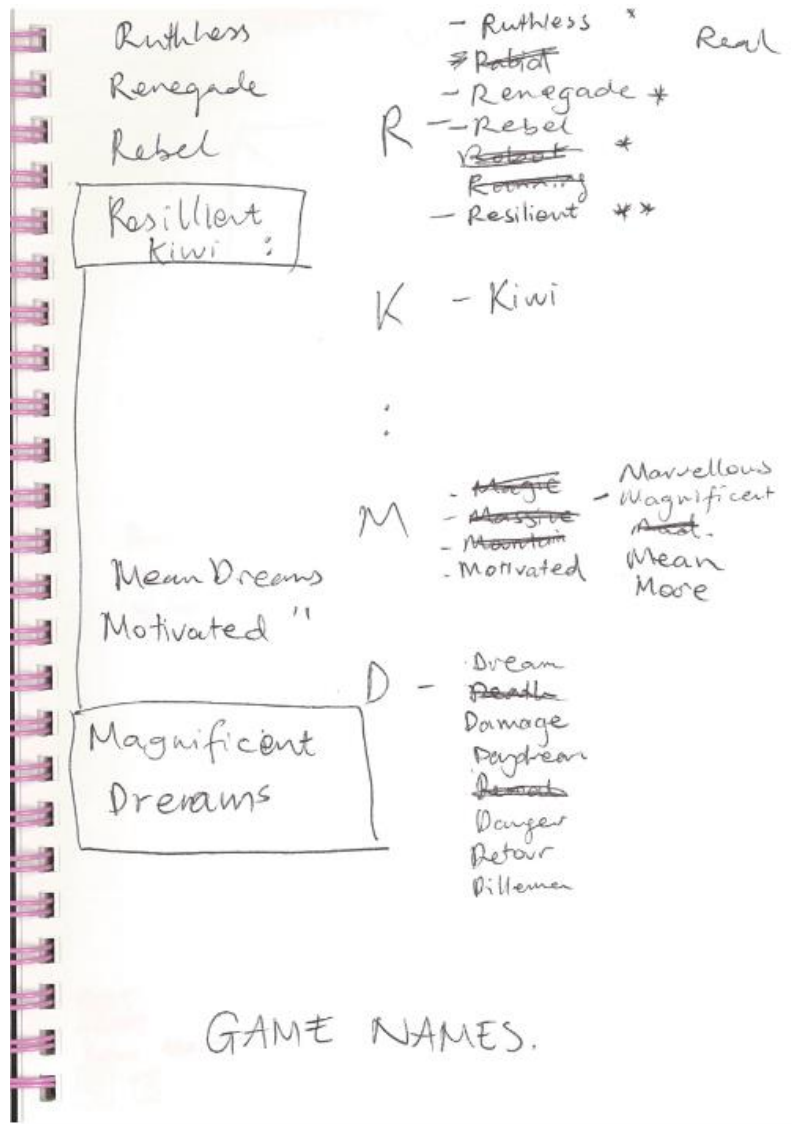 Ruthless
Renegade
Rebel
Resillient
Kiwi :
Mean Dreams
Motivated "
Magnificent
Drenams
R
- Ruthless *
* Rabid
- Renegade *
- Rebel
Robust *
Running
- Resilient **
Real
K - Kiwi
:
M
- Magic
- Massive
- Mountain
- Motivated
Marvellous
- Magnificent
Mad.
Mean
More
D -
Dream
Death
Damage
Daydream
Danger
Detour
Dillemen
GAME NAMES.